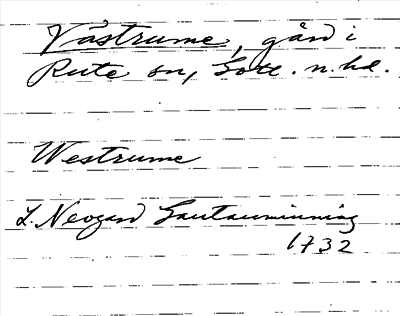 Västrume, gård i
Rute sn, Gotl. n. hd.
Westrume
L. Neogard Gautauminning
1732